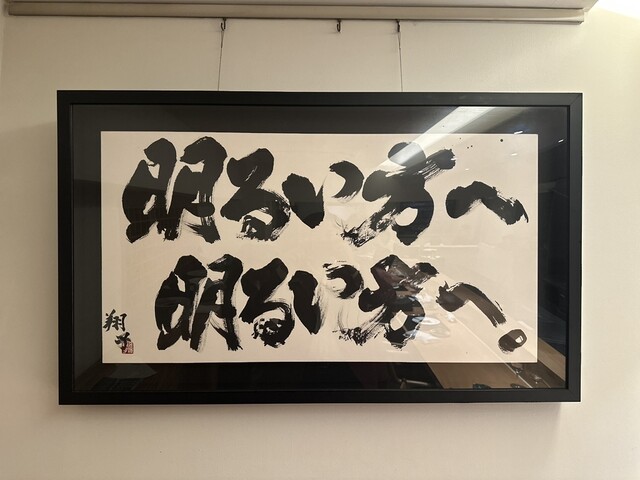 明るい方へ
明るい方へ。
翔